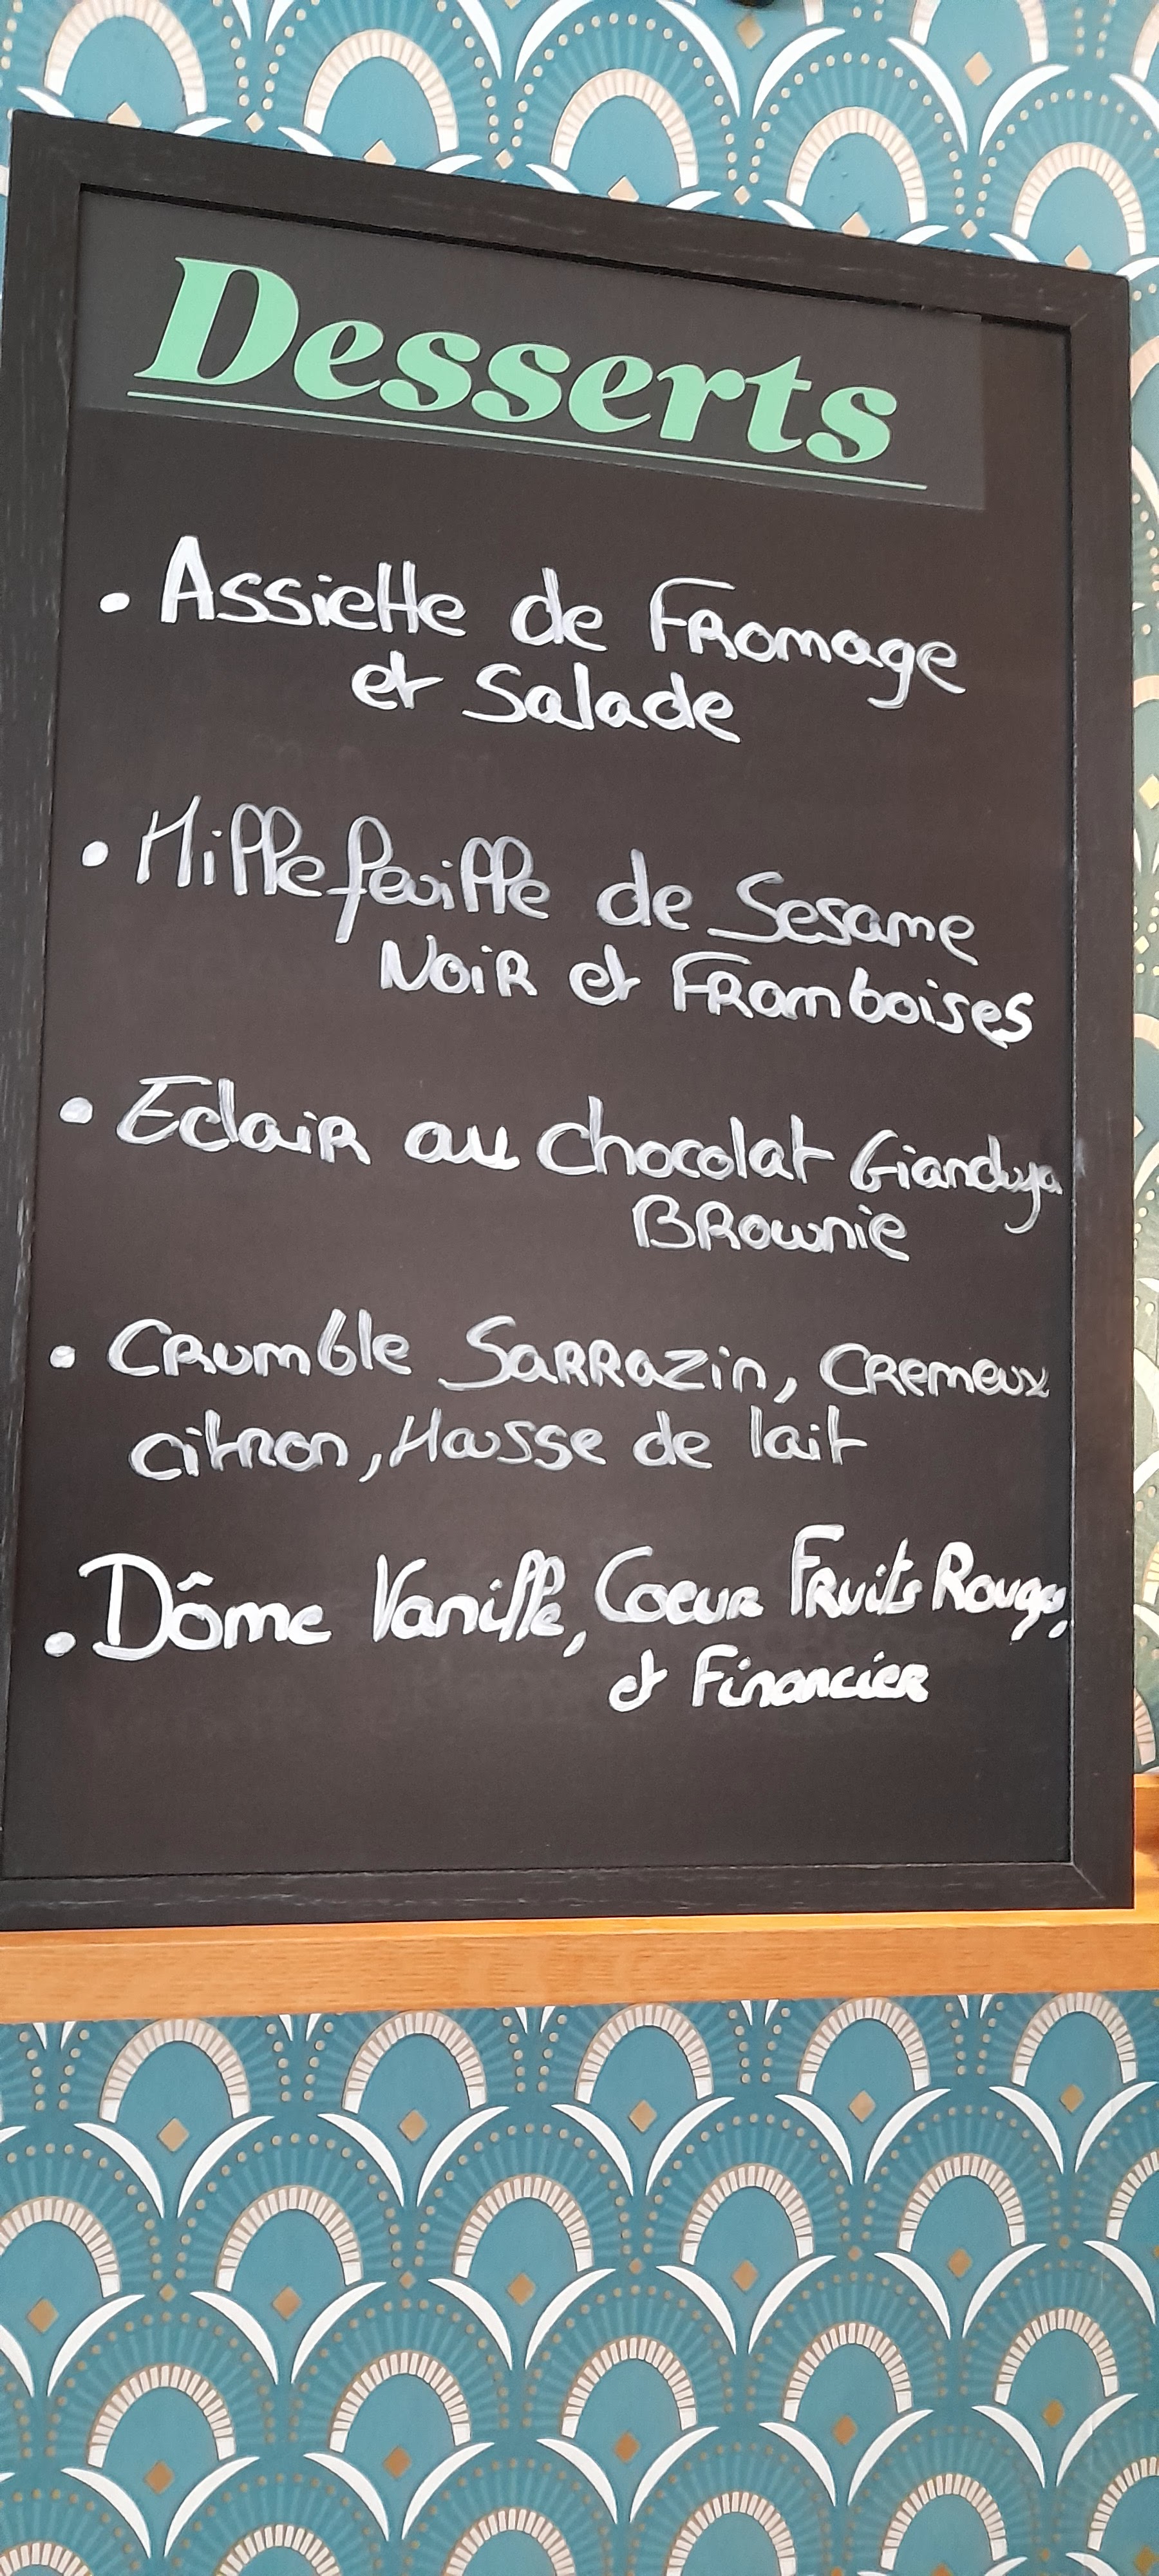 Desserts
• Assiette de Fromage
et Salade
• Millefeuille de Sesame
Noir et Framboises
• Eclair au chocolat Gianduya
Brownie
• Crumble Sarrazin, Cremeux
citron, Mousse de lait
• Dôme Vanille, Coeur Fruits Rouges,
et Financier